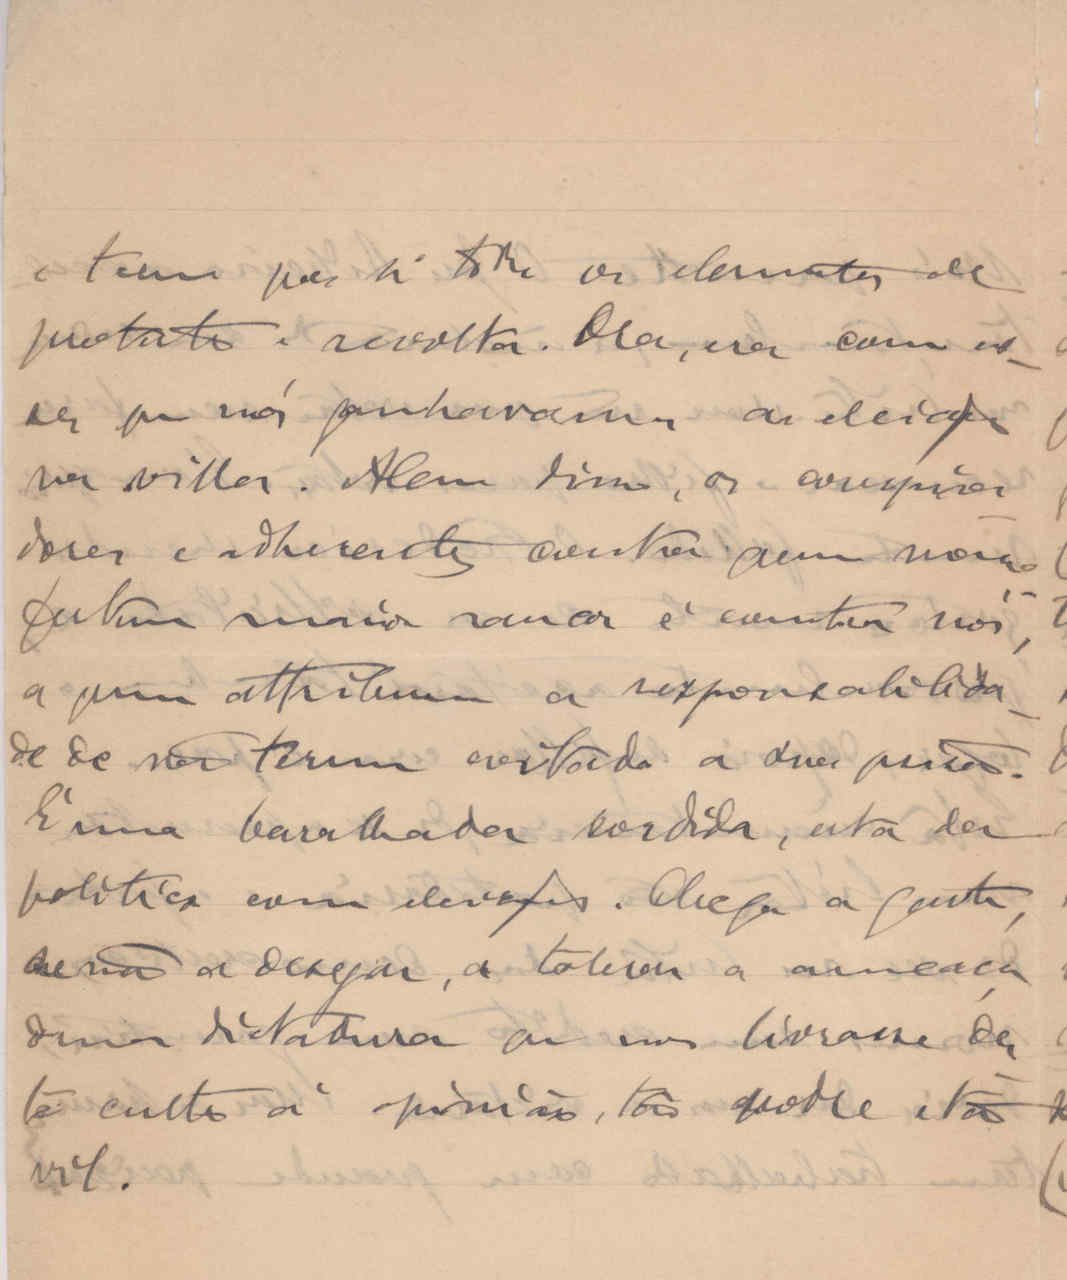 e teem por si todos os elementos de
protesto e revolta. Ora, era com es-
ses que nós ganhavamos as eleições
na villa. Alem disso, os conspira
dores e adherentes contra quem
maior rancor é contra nós,
a quem attribuem a responsabilida-
de de não terem evitado a sua prisão.
É uma baralhada sordida, esta da
politica com eleições. Chega a gente,
se não a desejar, a tolerar a ameaça
duma dictadura que nos livrasse des
te culto á opinião, tão podre e tão
vil.